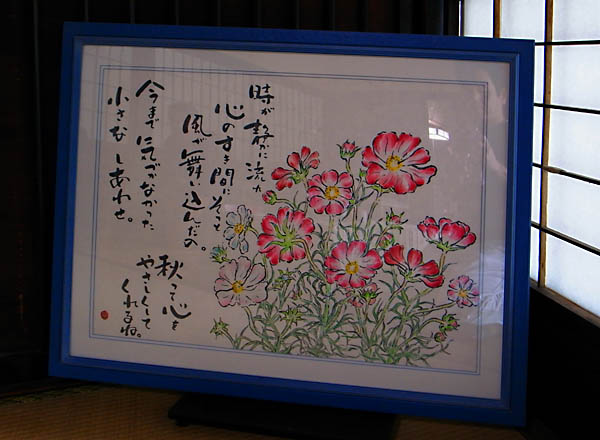 時が静かに流れ
心のすき間にそっと
風が舞い込んだの。
今まで気がなかった
小さな しあわせ。
秋って心を
やさしくして
くれるね。